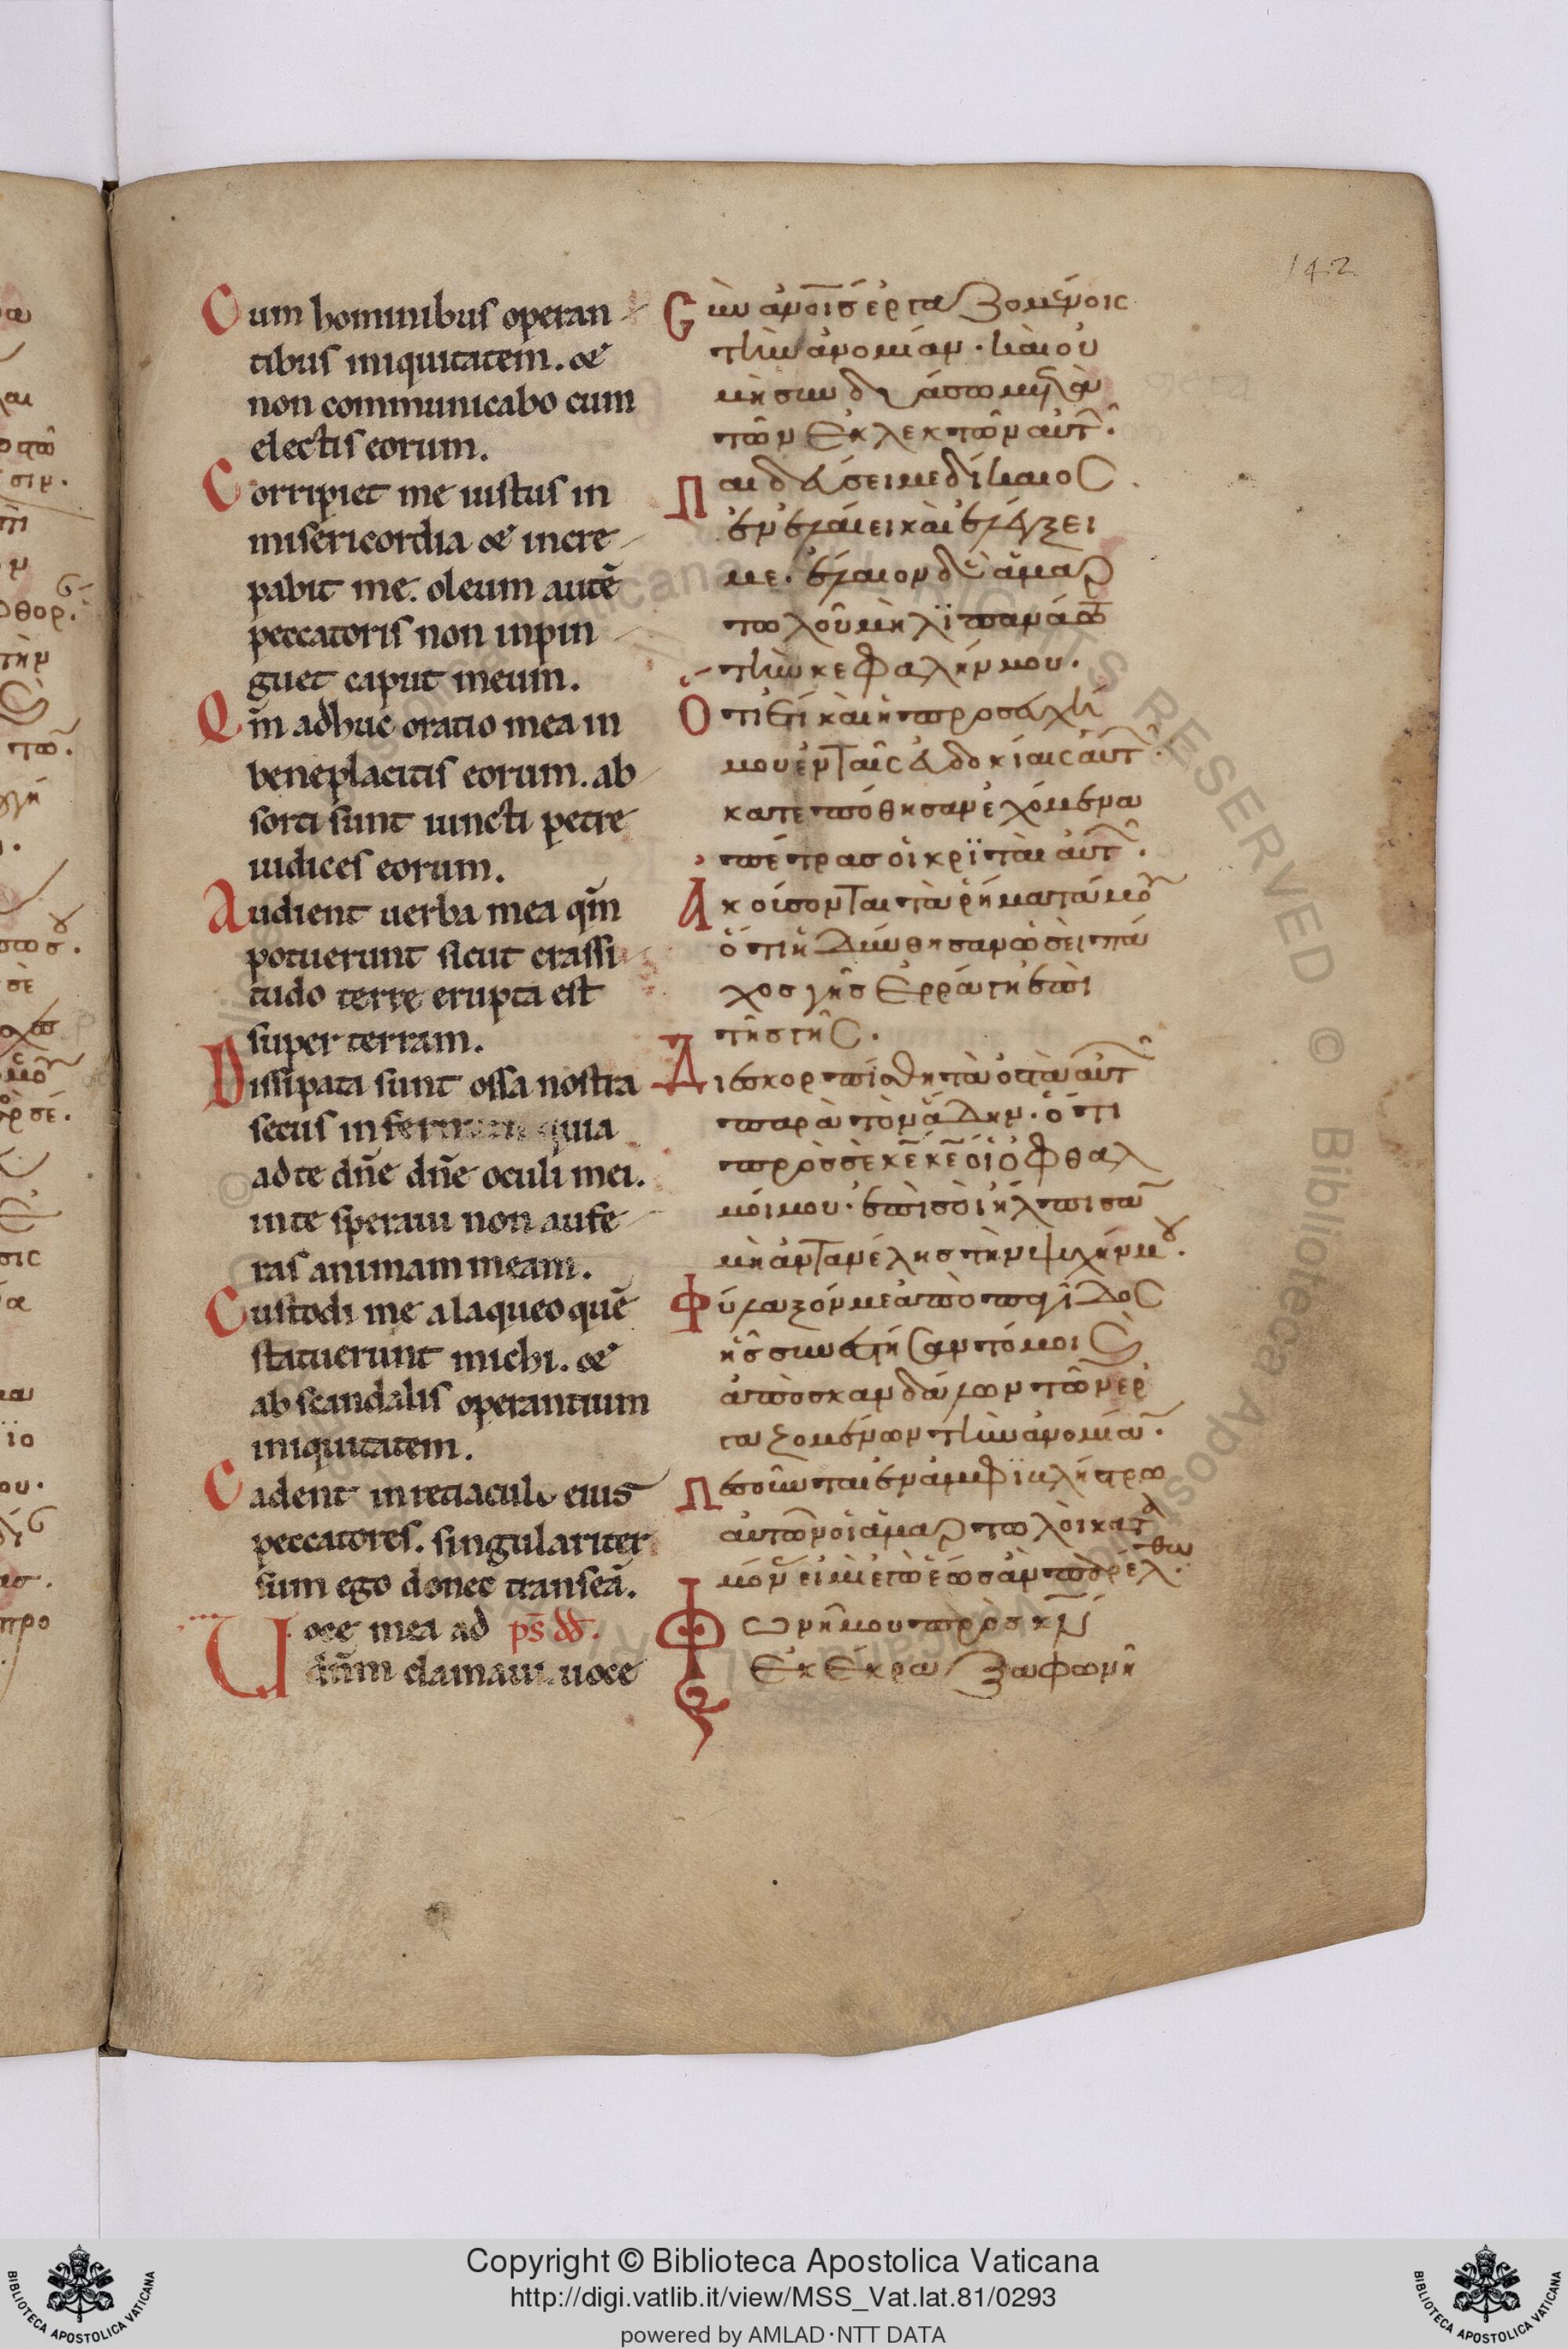 142
Cum hominibus operan
tibus iniquitatem. &
non communicabo cum
electis eorum.
Corripiet me iustus in
misericordia & incre
pabit me. oleum autē
peccatoris non inpin
guet caput meum.
Qm̄ adhuc oratio mea in
beneplacitis eorum. ab
sorti sunt iuncti petre
iudices eorum.
Audient uerba mea qm̄
potuerunt sicut crassi
tudo terre erupta est
super terram.
Dissipata sunt ossa nostra
secus infernum quia
ad te dn̄e dn̄e oculi mei.
in te speraui non aufe
ras animam meam.
Custodi me a laqueo quē
statuerunt michi. &
ab scandalis operantium
iniquitatem.
Cadent in retiaculo eius
peccatores. singulariter
sum ego donec transeā.
Uoce mea ad ps̄ dd̄.
dn̄m clamaui. uoce
Cὺν ἀνο̄ισ ἐργαζομένοις
τὴν ἀνομίαν. καὶ οὐ
μὴ συνδυάσω μετὰ
τῶν ἐκλεκτῶν αὐτ̑.
Παιδεύσει με δίκαιος
ἐν ἐλαίει καὶ ἐλέγξει
με. ἔλαιον δὲ ἁμαρ
τωλοῦ μὴ λϊπανάτω
τὴν κεφαλήν μου.
Ὅτι ἔτι καὶ ἡ προσευχή
μου ἐν ταῖς εὐδοκίαις αὐτ̑.
κατεπόθησαν ἐχόμενα
πέτρασ οἱ κρϊταὶ αὐτ̑.
Ἀκούσονται τὰ ῥήματά μου
ὅτι ἡδύνθησαν ὡσεὶ πά
χοσ γῆσ ἐρράγη ἐπὶ
τῆσ γῆς.
Διεσκορπίσθη τὰ ὀστὰ αὐτ̑
παρὰ τὸν ἅδην. ὅτι
πρὸσ σὲ κ̄ε κ̄ε οἱ ὀφθαλ
μοί μου. ἐπὶ σοὶ ἤλπισα
μὴ ἀντανέλησ τὴν ψυχήν μου.
Φύλαξόν με ἀπὸ παγίδος
ἧσ συνεστήσαντό μοι καὶ
ἀπὸ σκανδάλων τῶν ἐρ
γαζομένων τὴν ἀνομίαν.
Πεσοῦνται ἐν ἀμφϊβλήστρω
αὐτῶν οἱ ἁμαρτωλοὶ κατὰ
μόνας εἰμὶ ἐγὼ ἕωσ ἂν παρέλθω.
Φωνῆ μου πρὸσ κ̄ν
ἐκέκραξα φωνῆ
Copyright © Biblioteca Apostolica Vaticana
http://digi.vatlib.it/view/MSS_Vat.lat.81/0293
powered by AMLAD·NTT DATA